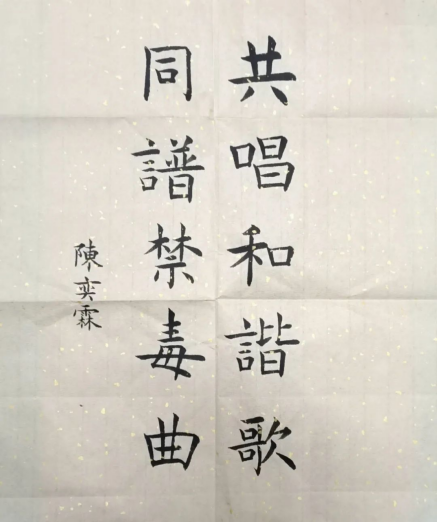 共唱和諧歌
同譜禁毒曲
陳奕霖